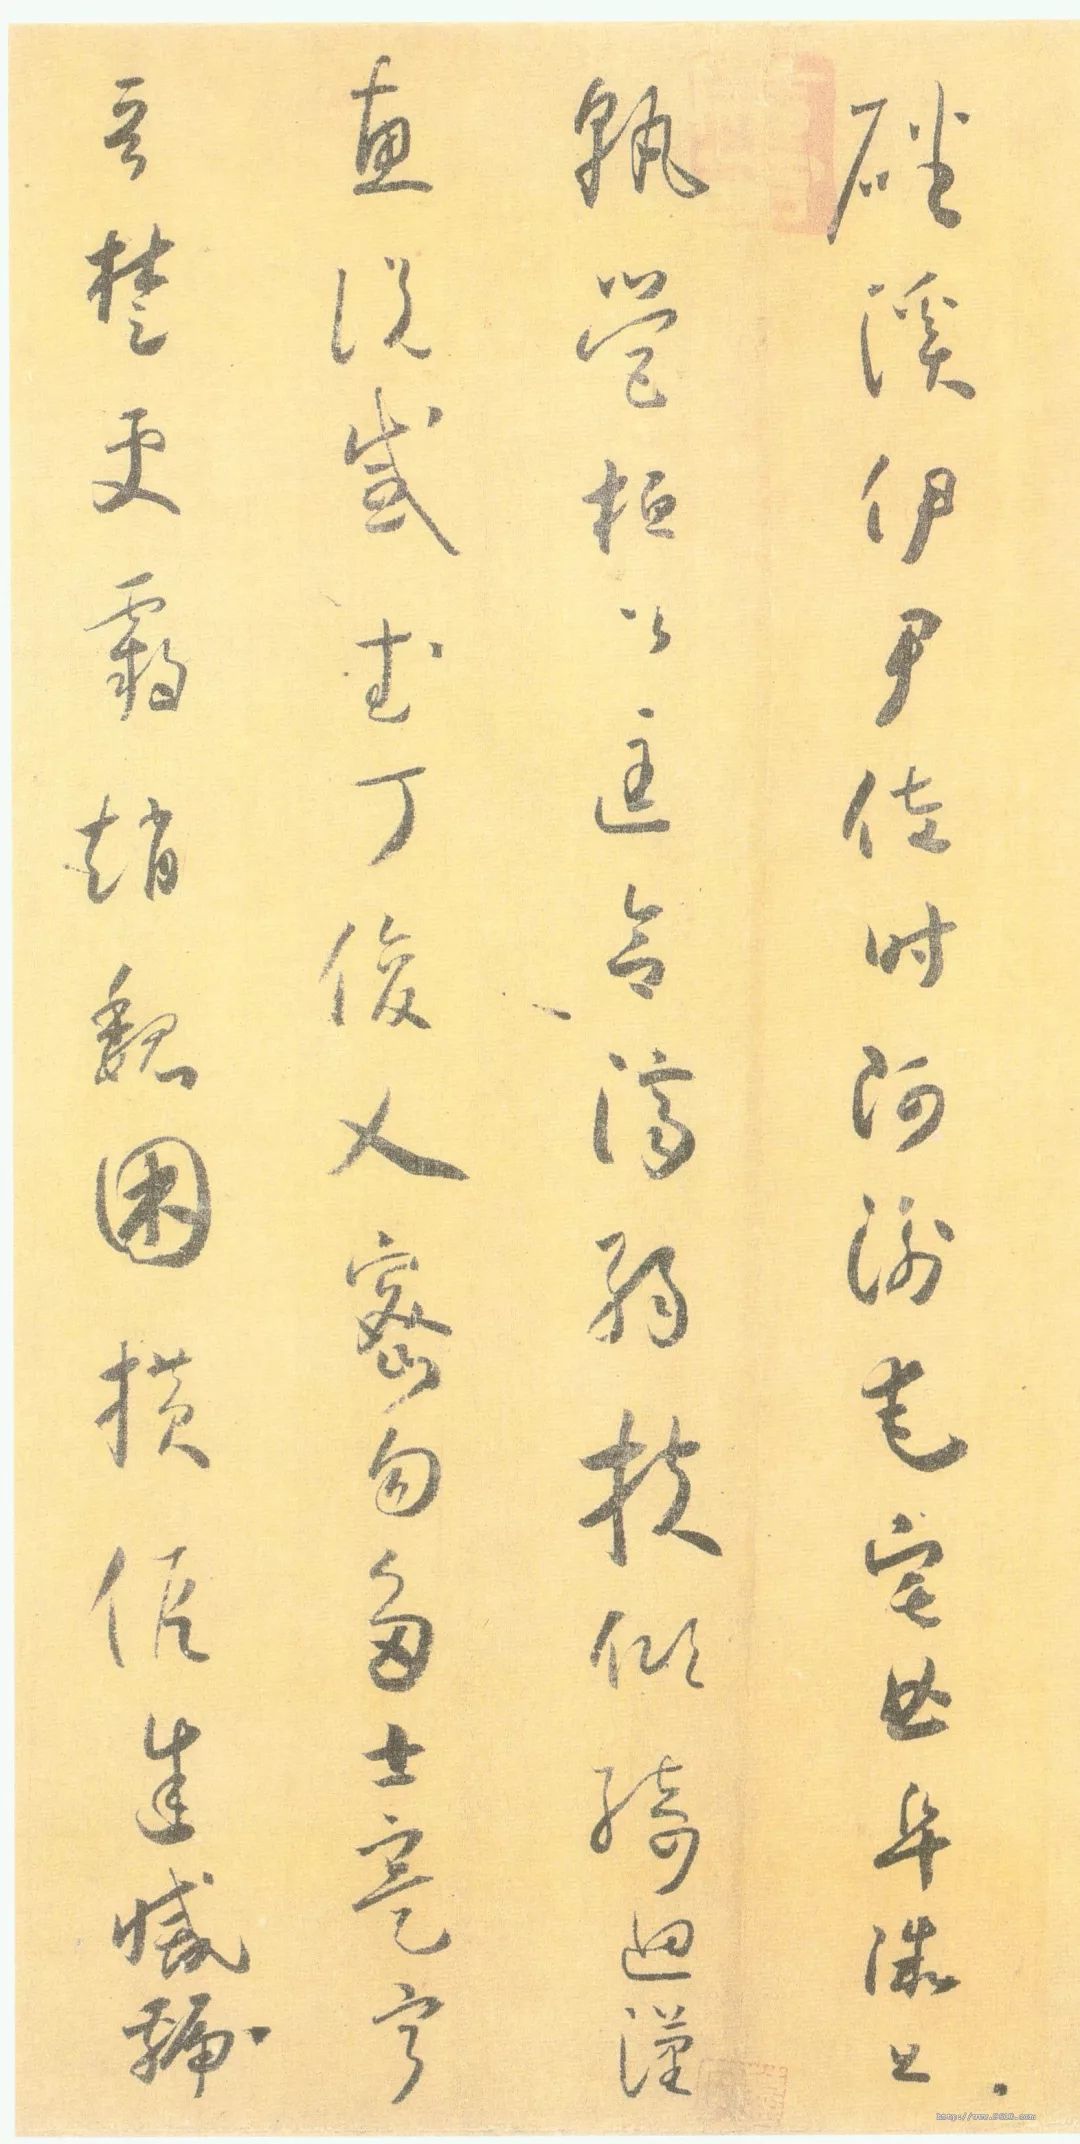 磻溪伊尹佐时阿衡奄宅曲阜微旦
孰营桓公匡合济弱扶倾绮迴漢
惠说感武丁俊乂密勿多士寔宁
晋楚更霸趙魏困横假途滅虢